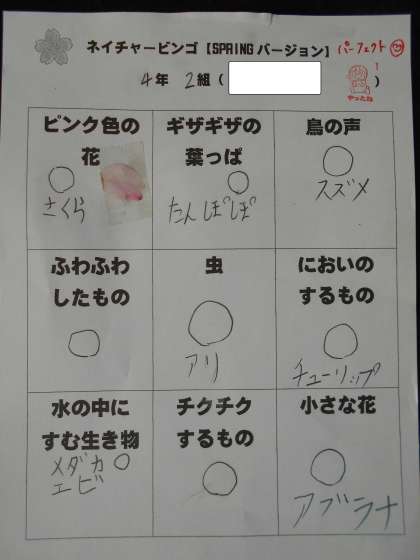 ネイチャービンゴ【SPRINGバージョン】
パーフェクト
4年 2組（ ）
やったね
ピンク色の
花
さくら
ギザギザの
葉っぱ
たんぽぽ
鳥の声
スズメ
ふわふわ
したもの
虫
アリ
においの
するもの
チューリップ
水の中に
すむ生き物
メダカ
エビ
チクチク
するもの
小さな花
アブラナ